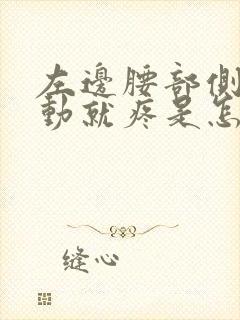 左邊腰部側
動就疼是怎
缝心